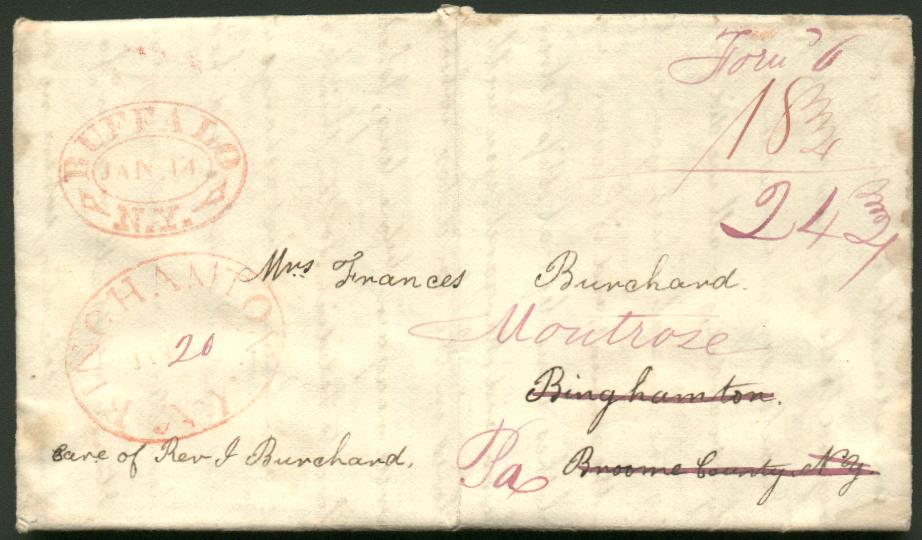 BUFFALO
JAN. 14
N.Y.
Forwd 6
18 3/4
24 3/4
BINGHAMTON
N.Y.
20
Mrs Frances Burchard.
Montrose
Binghamton.
Pa Broome County N.Y.
Care of Rev J Burchard.